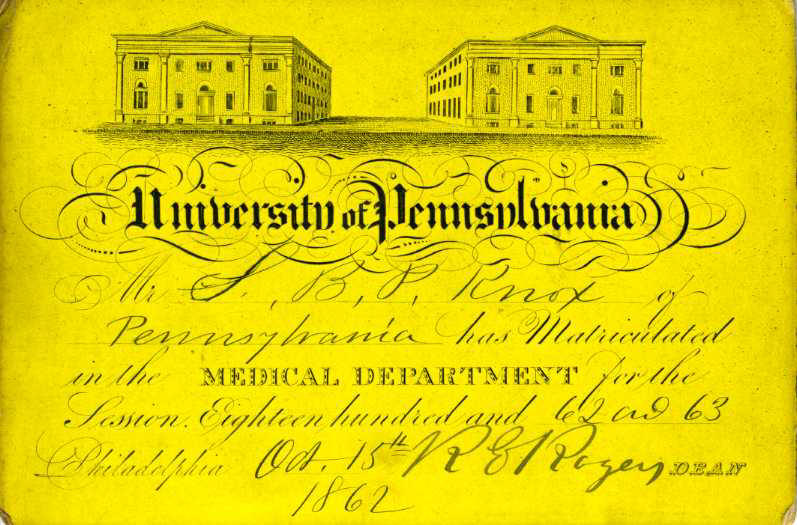 University of Pennsylvania
Mr S. B. P. Knox of
Pennsylvania has Matriculated
in the MEDICAL DEPARTMENT for the
Session. Eighteen hundred and 62 and 63
Philadelphia Oct. 15th R E Rogers DEAN
1862